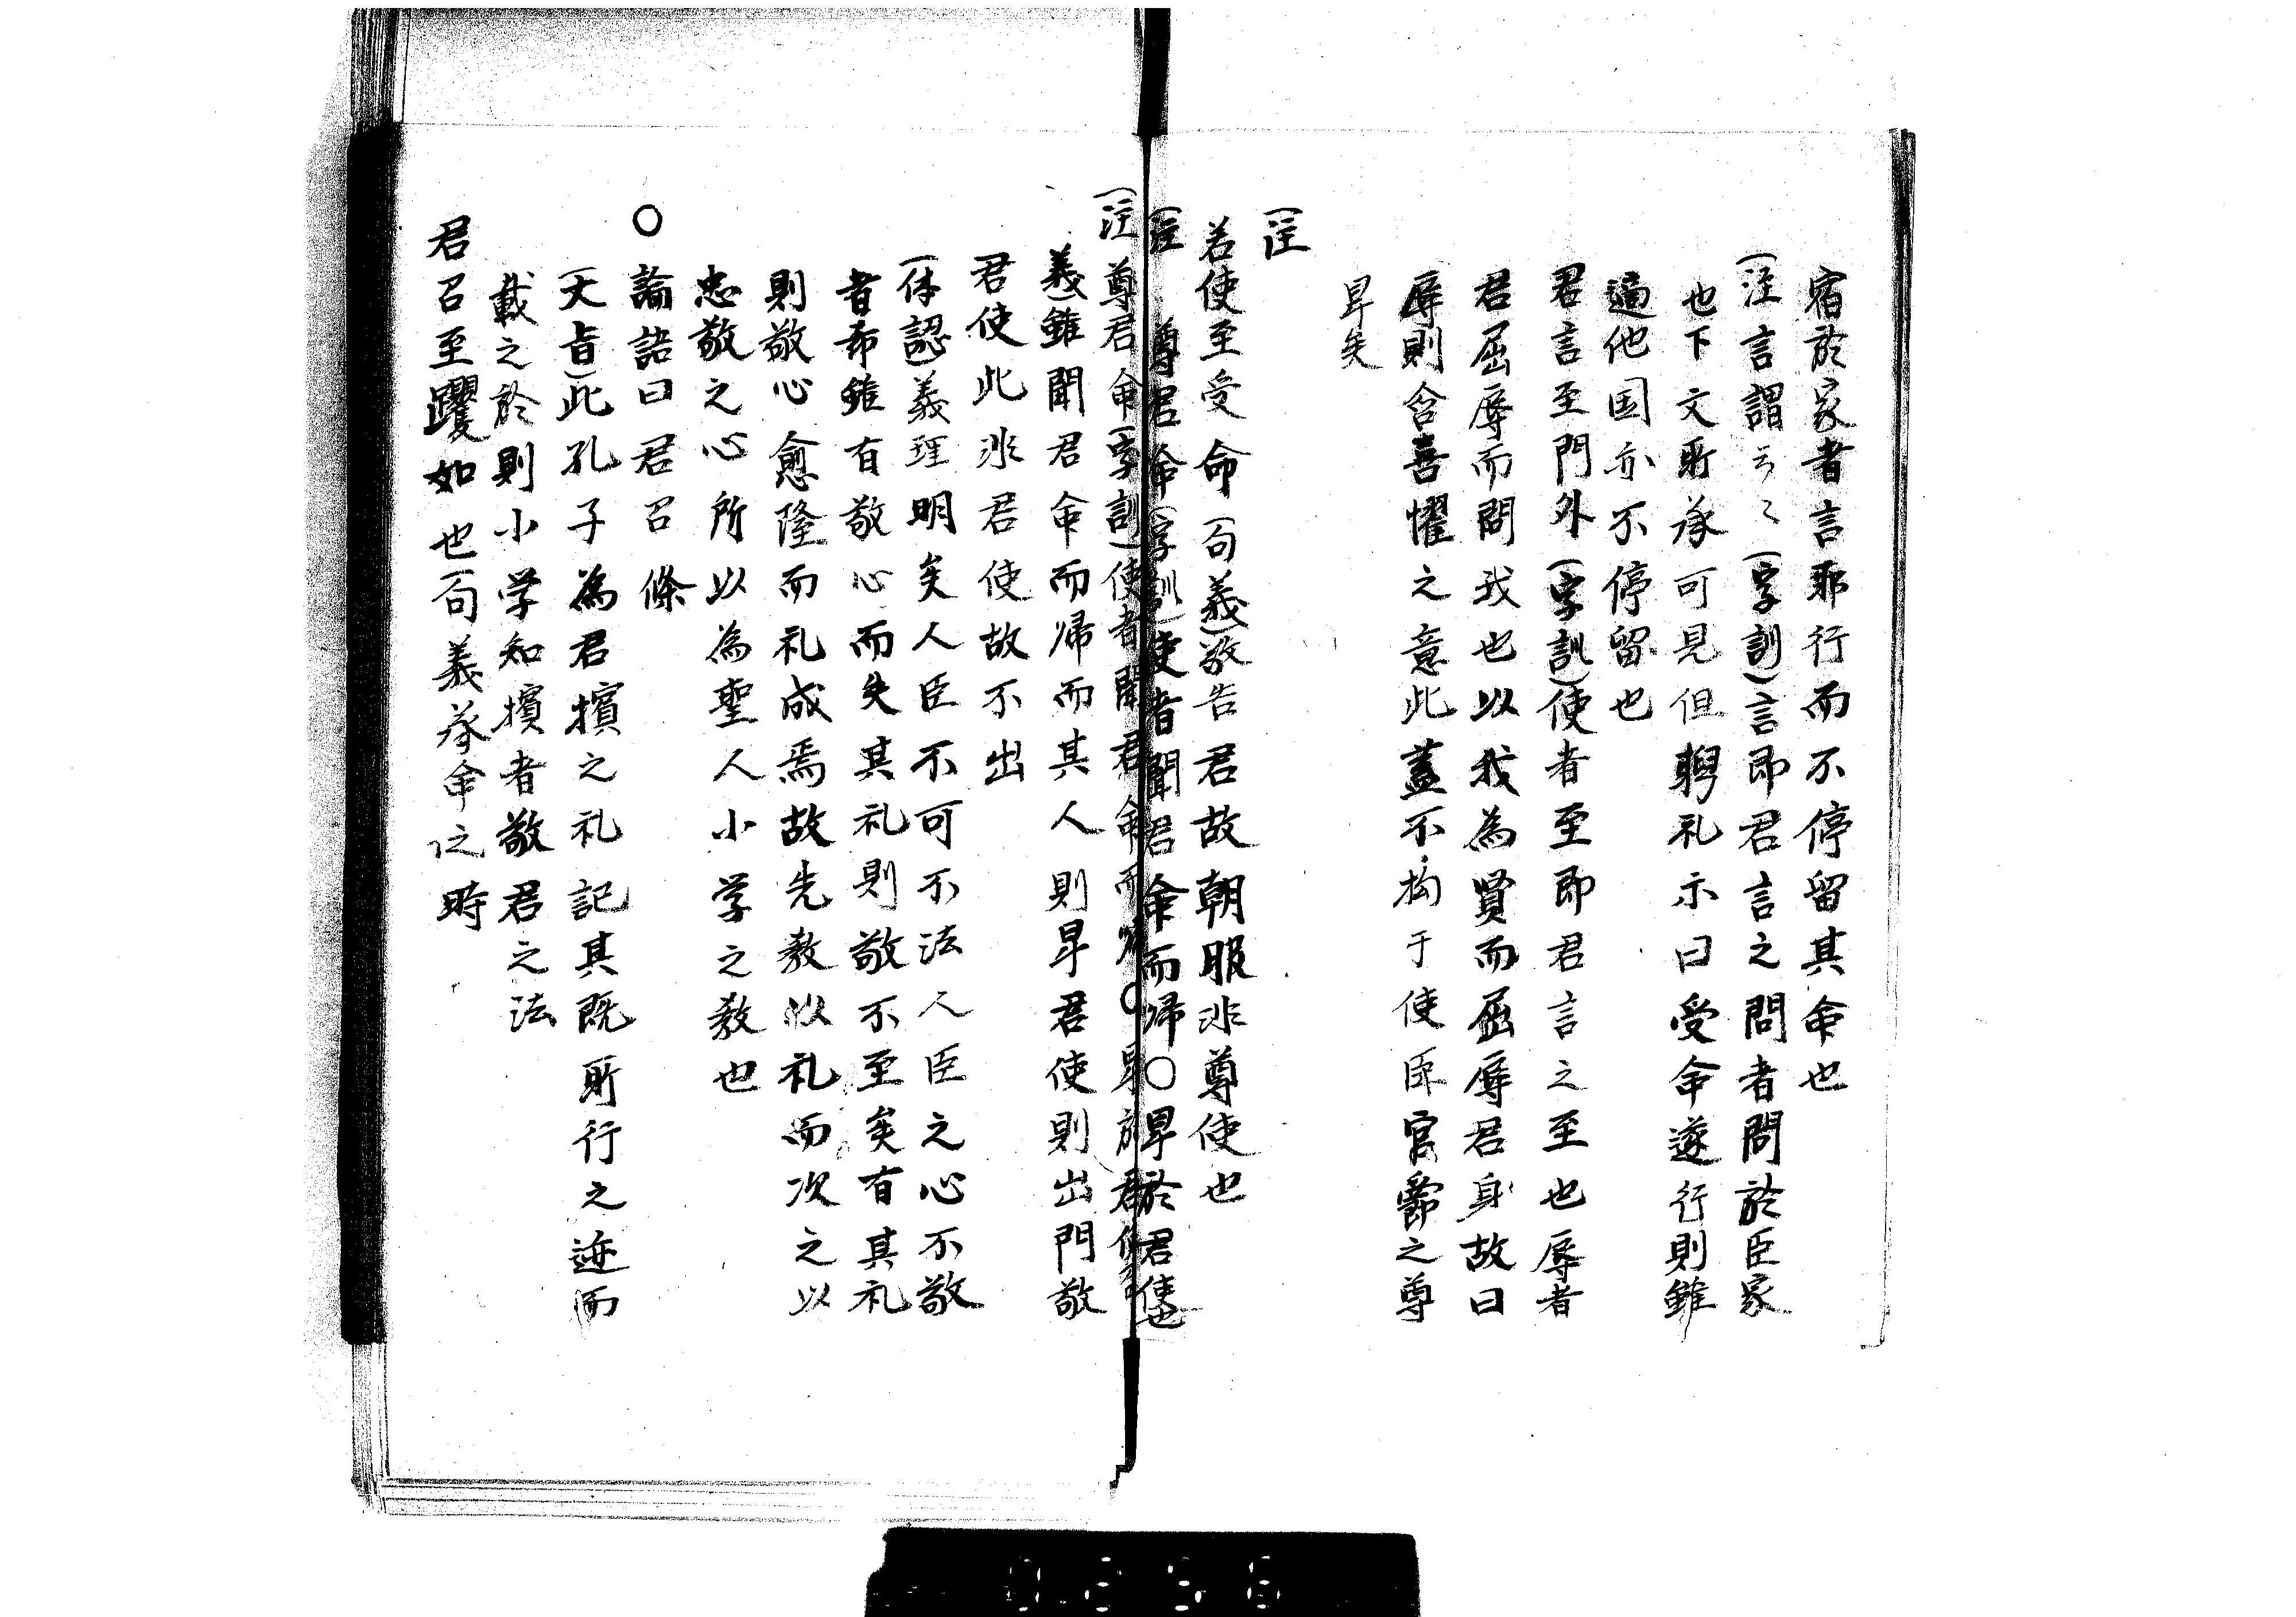 宿於家者言耶行而不停留其命也
(注言謂云々(字訓)言即君言之問者問於臣家
也下文所承可見但聘礼示曰受命遂行則雖
適他国亦不停留也
君言至門外(字訓)使者至即君言之至也辱者
君屈辱而問我也以我為賢而屈辱君身故曰
辱則含喜懼之意此蓋不拘于使臣官爵之尊
卑矣
(注
若使至受命(句義)敬告君故朝服非尊使也
(注 尊君命(字訓)使者聞君命而帰○卑於君使也
(注 尊君命(字訓)使者聞君命而帰○卑於君使
義(雖聞君命而帰而其人則卑君使則出門敬
君使此非君使故不出
(体認)義理明矣人臣不可不法人臣之心不敬
者希雖有敬心而失其礼則敬不至矣有其礼
則敬心愈隆而礼成焉故先教以礼而次之以
忠敬之心所以為聖人小学之教也
○論語曰君召條
(大旨)此孔子為君擯之礼記其既所行之迹而
載之於則小学知擯者敬君之法
君召至躩如也(句義奉命之時